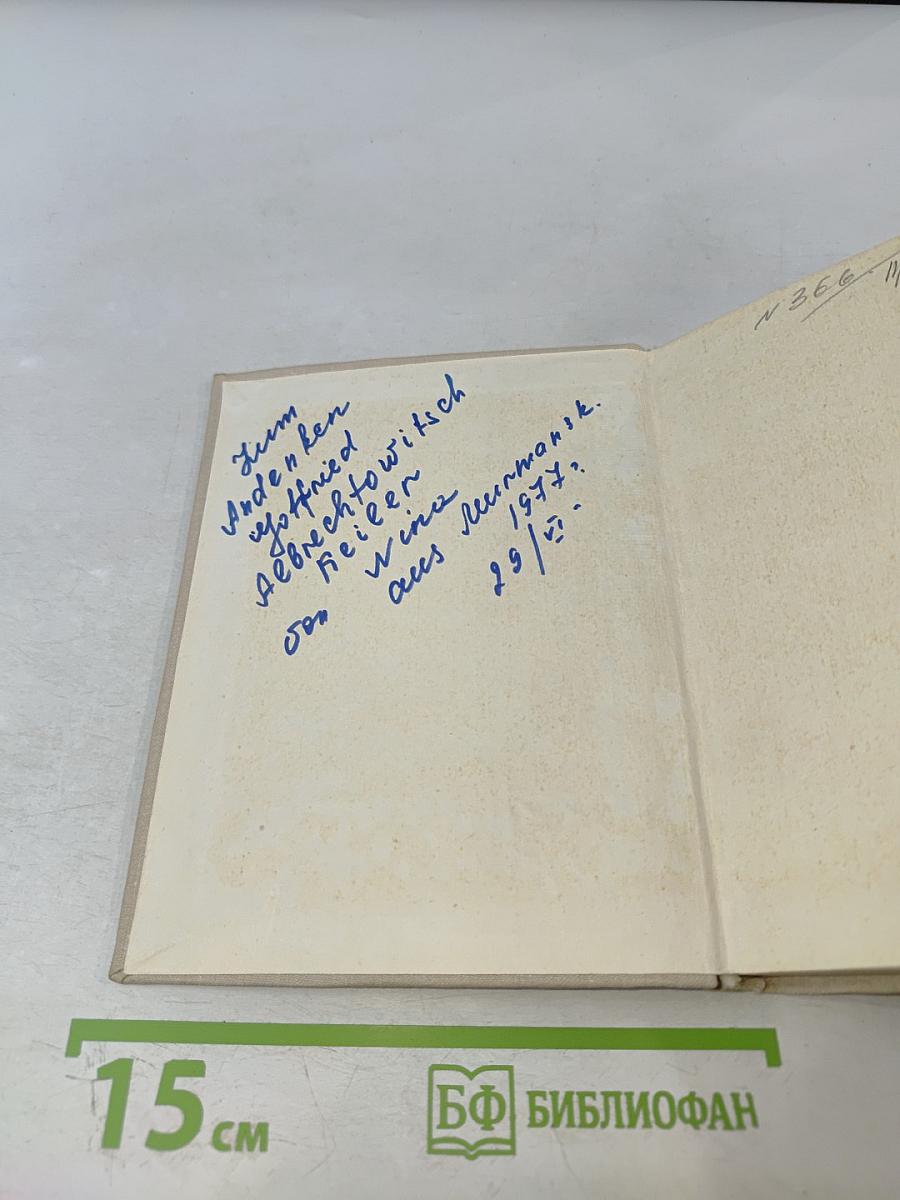 Zum
Andenken
Gottfried
Albrechtowitsch
Keiler
von Nina
aus Murmansk.
1977г.
29/VI.
N 366
15 см
БФ БИБЛИОФАН